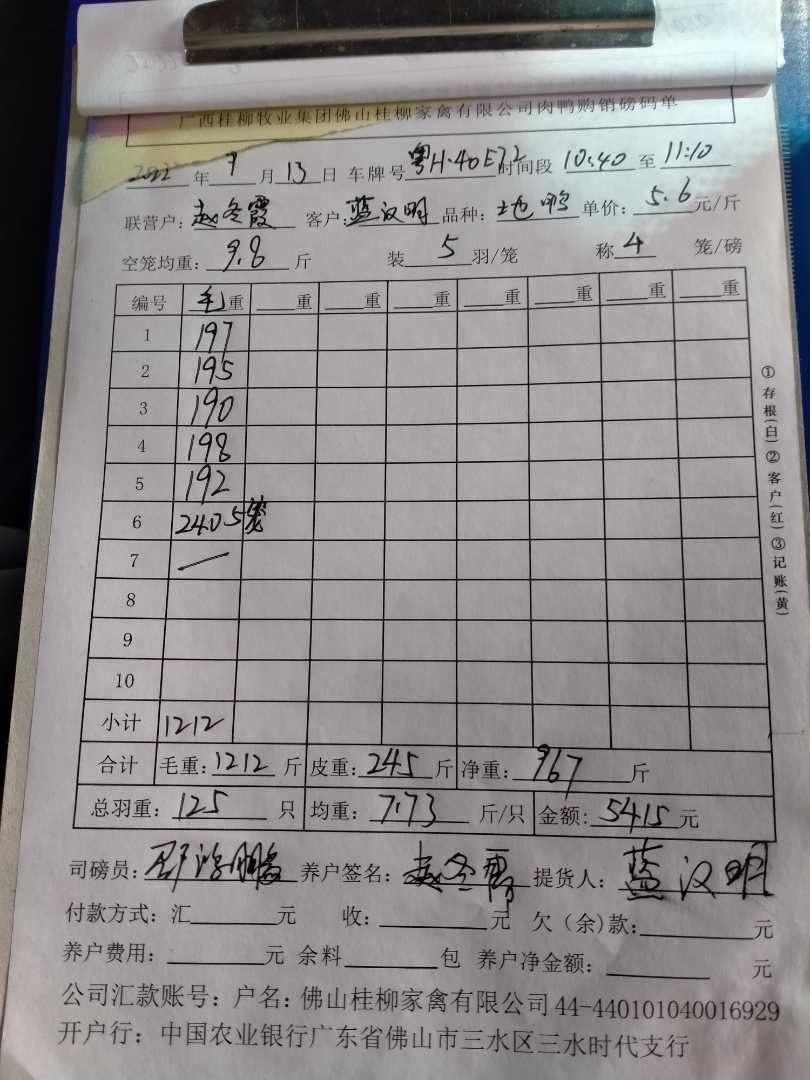 广西桂柳牧业集团佛山桂柳家禽有限公司肉鸭购销磅码单
2022年9月13日 车牌号粤H·40E72时间段10:40至11:10
联营户:赵冬霞 客户:蓝汉明 品种:土也鸭 单价:5.6元/斤
空笼均重:9.8斤 装5羽/笼 称4笼/磅
编号 毛重 重 重 重 重 重 重 重
1 197
2 195
3 190
4 198
5 192
6 240 5笼
7 —
8
9
10
小计 1212
合计 毛重:1212斤 皮重:245斤 净重:967斤
总羽重:125只 均重:7.73斤/只 金额:5415元
司磅员: 养户签名:赵冬霞 提货人:蓝汉明
付款方式:汇元 收:元 欠(余)款:元
养户费用:元 余料包 养户净金额:元
公司汇款账号:户名:佛山桂柳家禽有限公司44-440101040016929
开户行:中国农业银行广东省佛山市三水区三水时代支行
①存根(白)②客户(红)③记账(黄)